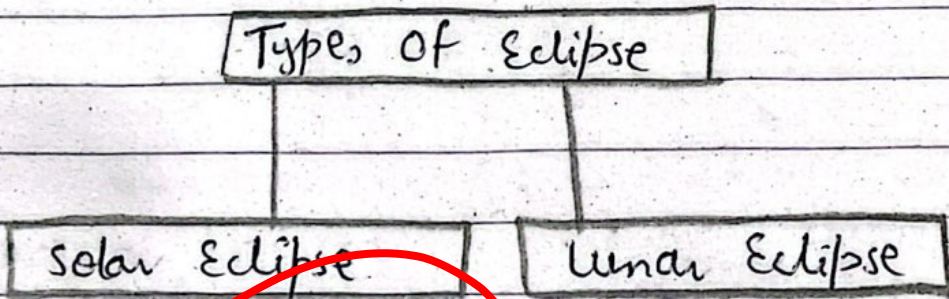 Types Of Eclipse
Solar Eclipse
Lunar Eclipse